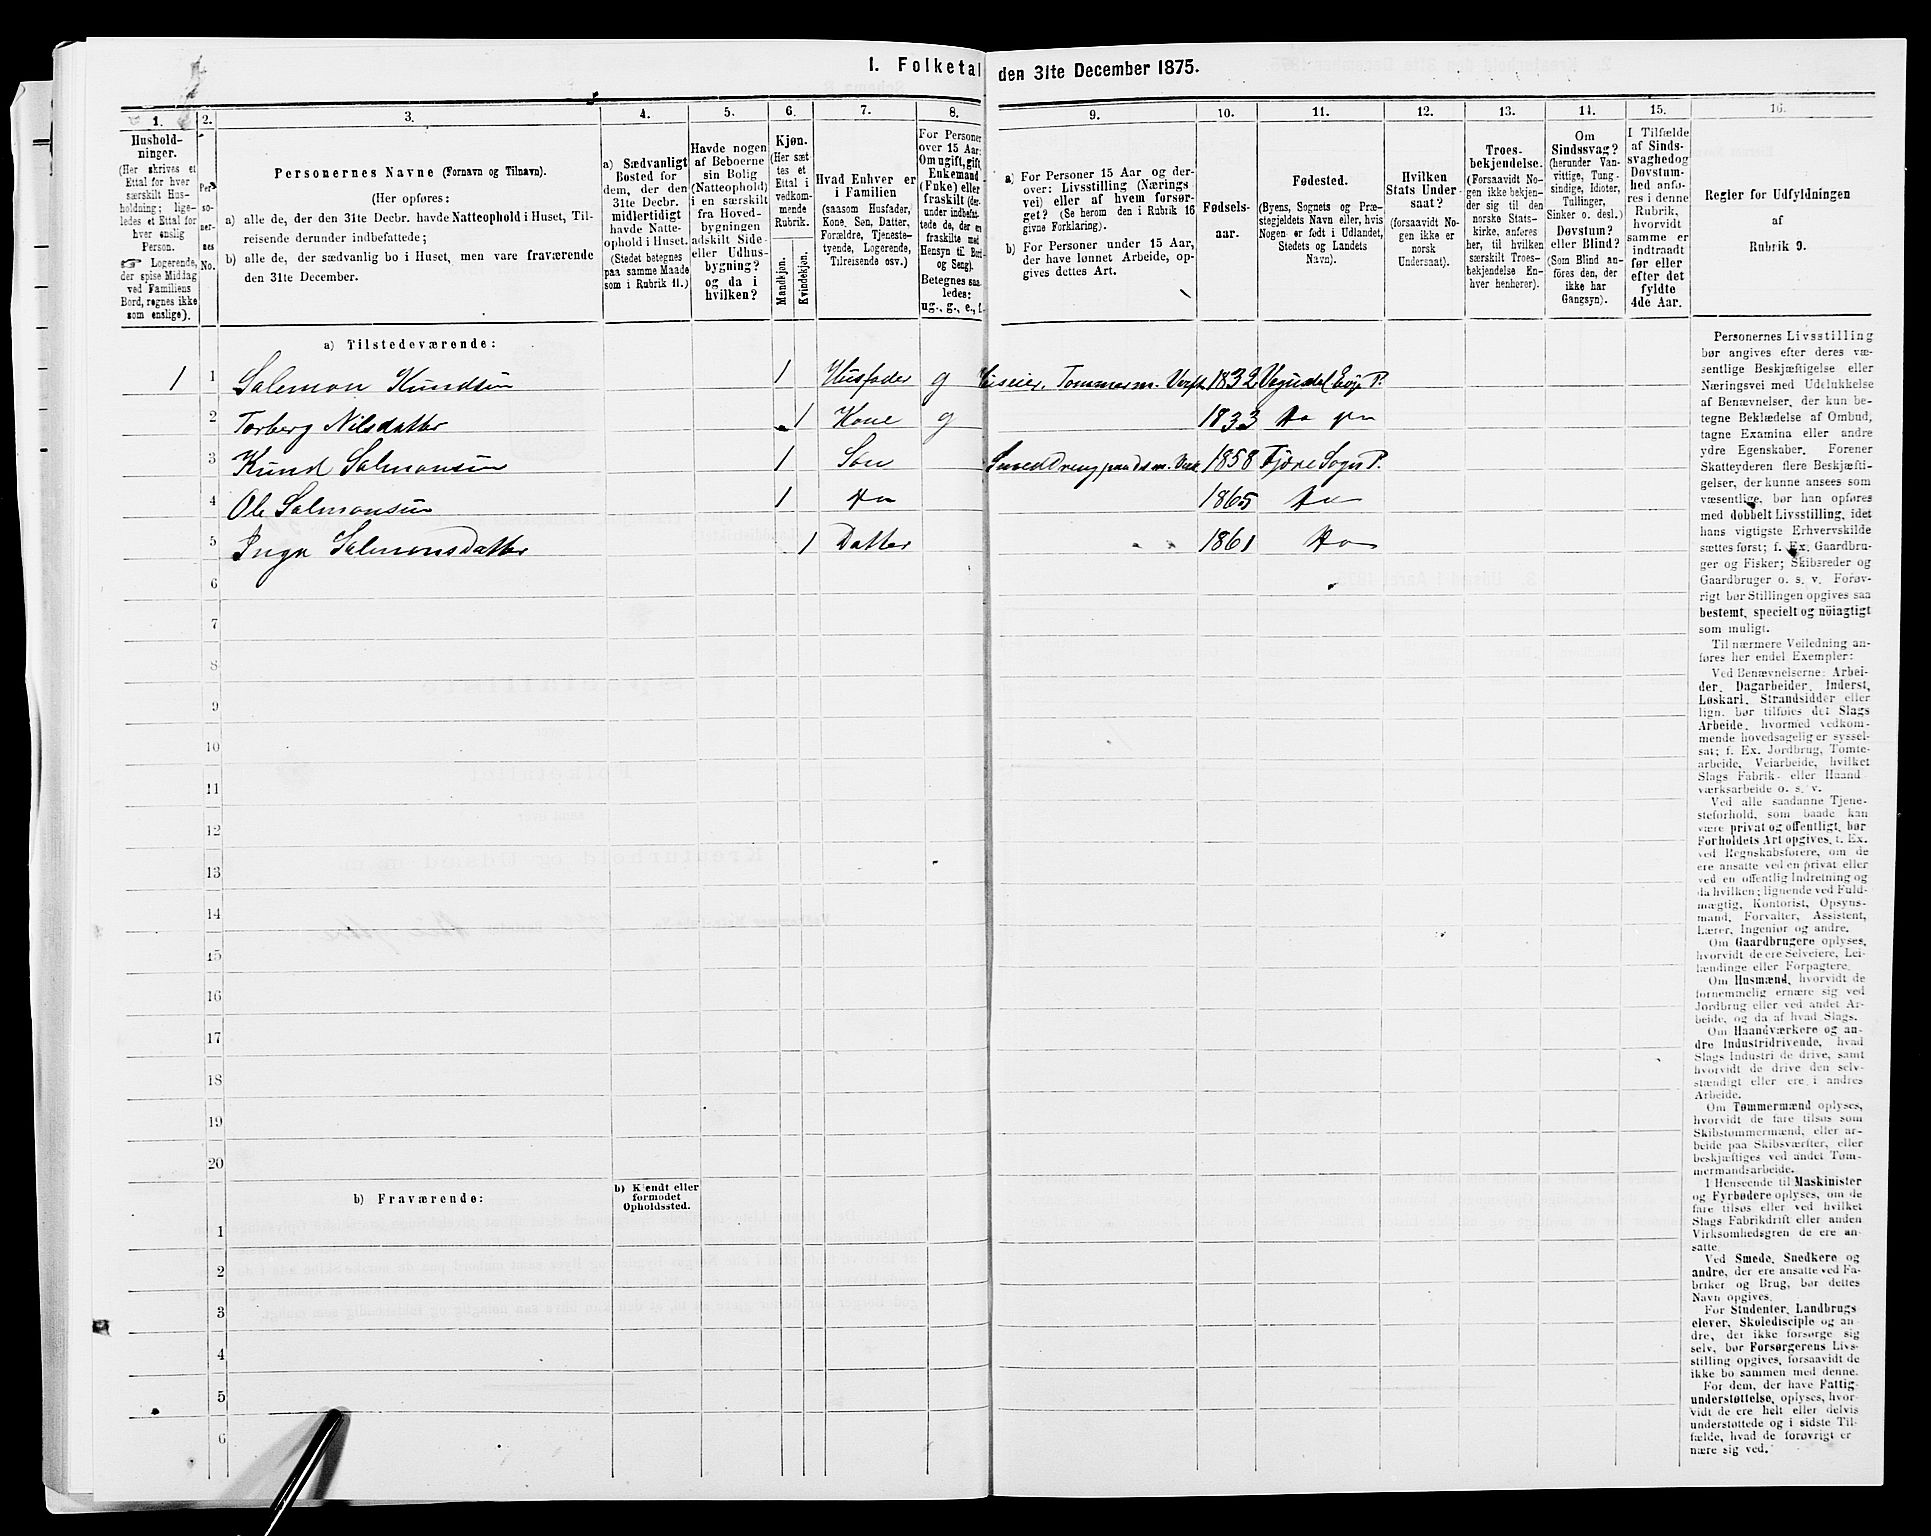 I. Folketal den 31te December 1875.
1. 2. 3. 4. 5. 6. 7. 8. 9. 10. 11. 12. 13. 14. 15. 16.
Hushold-
ninger.
(Her skrives et
Ettal for hver
særskilt Hus-
holdning; lige-
ledes et Ettal for
hver enslig
Person.
☞ Logerende,
der spise Middag
ved Familiens
Bord, regnes ikke
som enslige).
Per-
so-
ner-
nes
No.
Personernes Navne (Fornavn og Tilnavn).
(Her opføres:
a) alle de, der den 31te Decbr. havde Natteophold i Huset, Til-
reisende derunder indbefattede;
b) alle de, der sædvanlig bo i Huset, men vare fraværende
den 31te December.
a) Sædvanligt
Bosted for
dem, der den
31te Decbr.
midlertidigt
havde Natte-
ophold i Huset.
(Stedet betegnes
paa samme Maade
som i Rubrik 11.)
Havde nogen
af Beboerne
sin Bolig
(Natteophold)
i en særskilt
fra Hoved-
bygningen
adskilt Side-
eller Udhus-
bygning?
og da i
hvilken?
Kjøn.
(Her sæt-
tes et
Ettal i
vedkom-
mende
Rubrik.
Mandkjøn.
Kvindekjøn.
Hvad Enhver er
i Familien
(saasom Husfader,
Kone, Søn, Datter,
Forældre, Tjeneste-
tyende, Logerende,
Tilreisende osv.)
For Personer
over 15 Aar:
Om ugift, gift,
Enkemand
(Enke) eller
fraskilt (der-
under indbefat-
tede de, der er
fraskilte med
Hensyn til Bord
og Seng).
Betegnes saa-
ledes:
ug., g., e., f.
a) For Personer 15 Aar og der-
over: Livsstilling (Nærings-
vei) eller af hvem forsør-
get? (Se herom den i Rubrik 16
givne Forklaring).
b) For Personer under 15 Aar,
der have lønnet Arbeide, op-
gives dettes Art.
Fødsels-
aar.
Fødested.
(Byens, Sognets og Præ-
stegjeldets Navn eller, hvis
Nogen er født i Udlandet,
Stedets og Landets
Navn).
Hvilken
Stats Under-
saat?
(forsaavidt No-
gen ikke er
norsk
Undersaat).
Troes-
bekjendelse.
(Forsaavidt No-
gen ikke bekjen-
der sig til den
norske Stats-
kirke, anføres
her, til hvilken
særskilt Troes-
bekjendelse En-
hver henhører).
Om
Sindssvag?
(herunder Van-
vittige, Tung-
sindige, Idioter,
Tullinger,
Sinker o. desl.)
Døvstum?
eller Blind?
(Som Blind an-
føres den, der
ikke har
Gangsyn).
I Tilfælde
af Sinds-
svaghed og
Døvstum-
hed anfø-
res i denne
Rubrik,
hvorvidt
samme er
indtraadt
før eller
efter det
fyldte
4de Aar.
Regler for Udfyldningen
af
Rubrik 9.
a) Tilstedeværende:
1 1 Salemon Knudsen 1 Husfader g 1832
2 Torberg Nilsdatter 1 Kone g 1833 Do Do
3 Knud Salmonsen 1 Søn 1858
4 Ole Salmonsen 1 Do 1865 Do
5 Inga Salmonsdatter 1 Datter 1861 Do
6
7
8
9
10
11
12
13
14
15
16
17
18
19
20
b) Fraværende:
b) Kjendt eller
formodet
Opholdssted.
1
2
3
4
5
6
Personernes Livsstilling
bør angives efter deres væ-
sentlige Beskjæftigelse eller
Næringsvei med Udelukkelse
af Benævnelser, der kun be-
tegne Beklædelse af Ombud,
tagne Examina eller andre
ydre Egenskaber. Forener
Skatteyderen flere Beskjæfti-
gelser, der kunne ansees som
væsentlige, bør han opføres
med dobbelt Livsstilling, idet
hans vigtigste Erhvervskilde
sættes først; f. Ex. Gaardbru-
ger og Fisker; Skibsreder og
Gaardbruger o. s. v. Forøv-
rigt bør Stillingen opgives saa
bestemt, specielt og nöiagtigt
som muligt.
Til nærmere Veiledning an-
føres her endel Exempler:
Ved Benævnelserne: Arbei-
der, Dagarbeider, Inderst,
Løskarl, Strandsidder eller
lign. bør tilføies det Slags
Arbeide, hvormed vedkom-
mende hovedsagelig er syssel-
sat; f. Ex. Jordbrug, Tomte-
arbeide, Veiarbeide, hvilket
Slags Fabrik- eller Haand-
værksarbeide o. s. v.
Ved alle saadanne Tjene-
steforhold, som baade kan
være privat og offentligt, bør
Forholdets Art opgives, f. Ex.
ved Regnskabsførere, om de
ere ansatte ved en privat eller
ved en offentlig Indretning og
da hvilken; lignende ved Fuld-
mægtig, Kontorist, Opsyns-
mand, Forvalter, Assistent,
Lærer, Ingeniør og andre.
Om Gaardbrugere oplyses,
hvorvidt de ere Selveiere, Lei-
lændinge eller Forpagtere.
Om Husmænd, hvorvidt de
fornemmelig ernære sig ved
Jordbrug eller ved andet Ar-
beide, og da af hvad Slags.
Om Haandværkere og an-
dre Industridrivende, hvad
Slags Industri de drive, samt
hvorvidt de drive den selv-
stændigt eller ere i andres
Arbeide.
Om Tømmermænd oplyses,
hvorvidt de fare tilsøs som
Skibstømmermænd, eller ar-
beide paa Skibsværfter, eller
beskjæftiges ved andet Tøm-
mermandsarbeide.
I Henseende til Maskinister
og Fyrbødere oplyses, om de
fare tilsøs eller ved hvilket
Slags Fabrikdrift eller anden
Virksomhedsgren de ere an-
satte.
Ved Smede, Snedkere og
andre, der ere ansatte ved Fa-
briker og Brug, bør dettes
Navn opgives.
For Studenter, Landbrugs-
elever, Skoledisciple og an-
dre, der ikke forsørge sig
selv, bør Forsørgerens Livs-
stilling opgives, forsaavidt de
ikke bo sammen med denne.
For dem, der have Fattig-
understøttelse, oplyses, hvor-
vidt de ere helt eller delvis
understøttede og i sidste Til-
fælde, hvad de forøvrigt er-
nære sig ved.